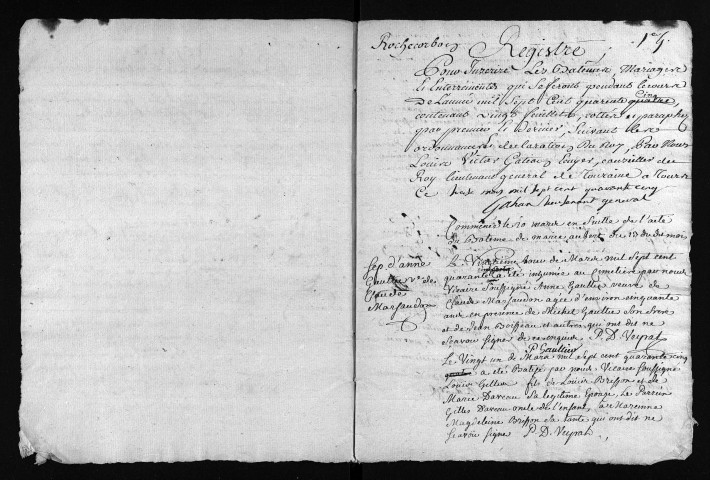 Rochecorbon Registre 1er
Pour Inserire Les Batemes, Mariages
Et Enterrements qui Se feront pendant le cours
De Lannée mil Sept Cent quarente cinq quatre
contenant vingt feuillets, cottes et paraphes
par premier et Dernier, Suivant les
ordonnances, et declarations Du Roy, Par Nous
Louis Victor Gatian Ecuyer, conseiller du
Roy lieutenant general de Touraine a Tours
Ce mil sept cent quarante cinq
lieutenant general
Commencé le 20 mars en Suitte de l'acte
du Bateme de marie du 19 dudit moi
Sep. d'anne
Gaultier Ve de
Claude
Marsaudon
Le Vingtieme jour de Mars mil Sept cent
quarante a été inhumée au cimetiere par nous
Vicaire Soussigné Anne Gaultier veuve de
Claude Marsaudon agee d'environ cinquante
ans en presence de Michel Gaultier Son frere
et de Jean Boiseau et autres qui ont dit ne
Scavoir Signe de ce enquis P. D. Veyrat
P Gaultier
Le Vingt un de Mars mil Sept cent quarante cinq
quatre a eté Batisé par nous Vicaire Soussigné
Louis Gilles fils de Louis Brisson et de
Marie Daveau Sa legitime Epouse, Le Parrein
Gilles Daveau oncle de l'enfant, la Marenne
Magdeleine Brisson Sa tante qui ont dit ne
Scavoir Signe P. D. Veyrat